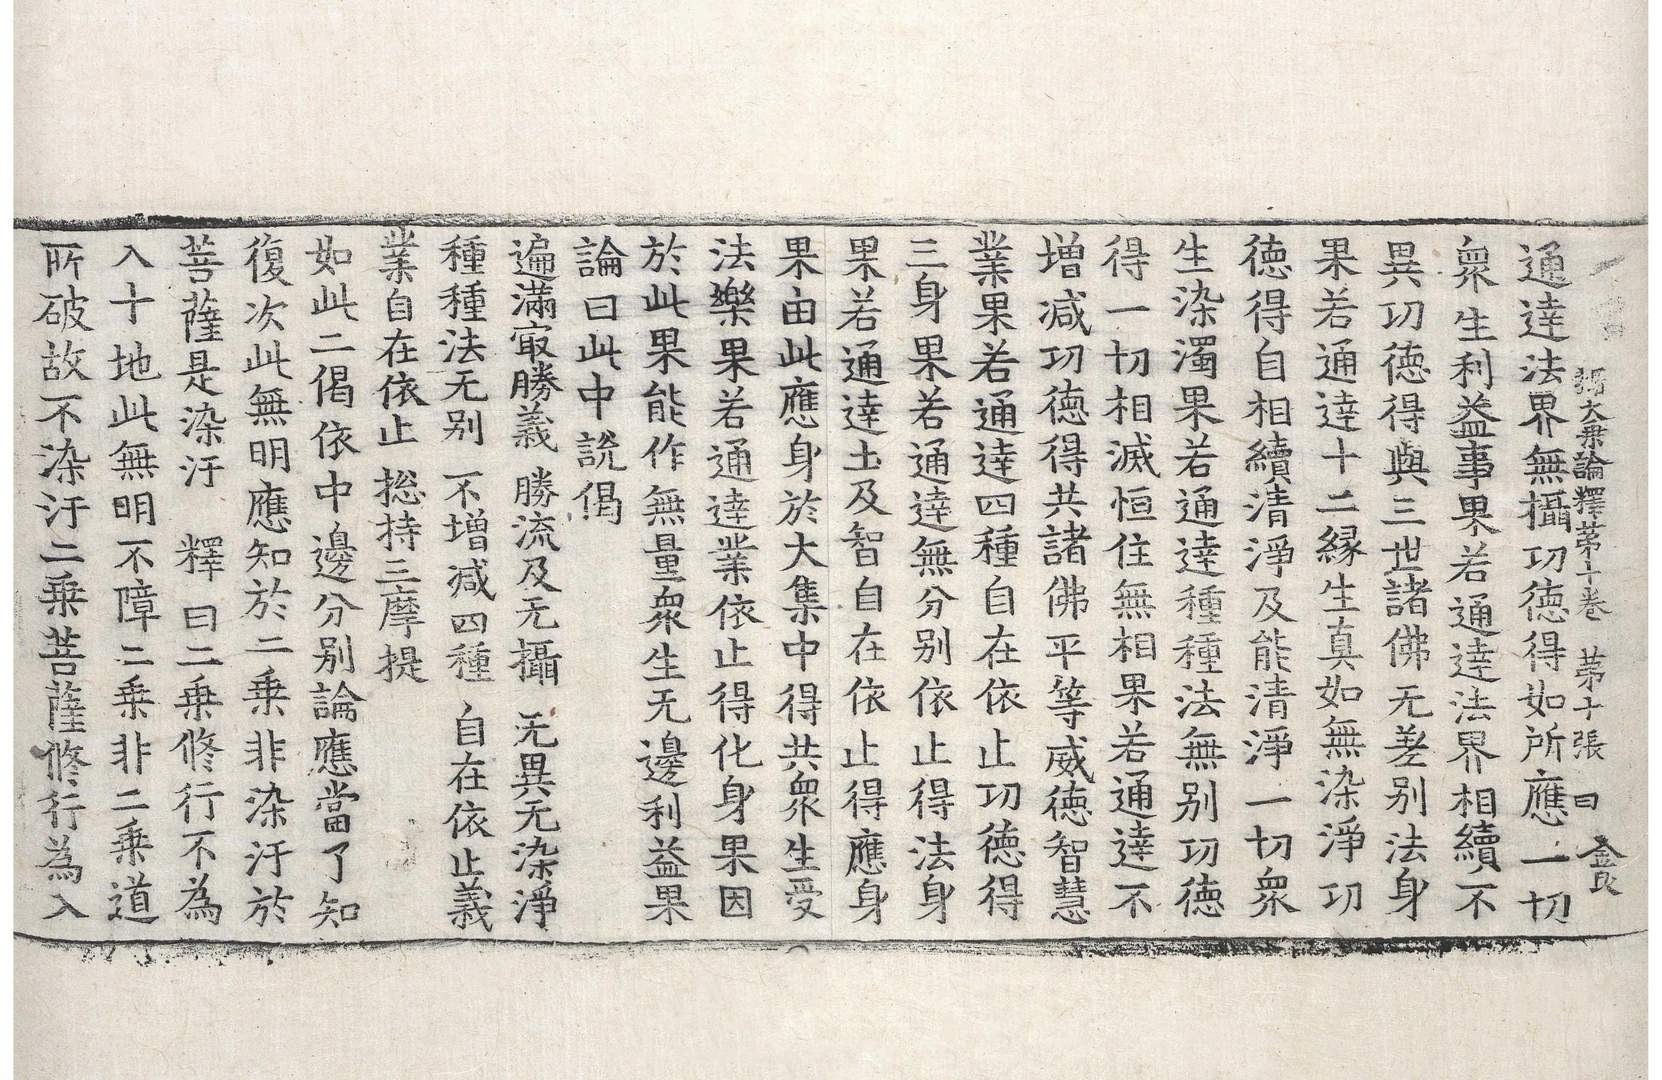 攝大乗論釋苐十卷　苐十張　曰　金良
通達法界無攝功德得如所應一切
衆生利益事果若通達法界相續不
異功德得與三世諸佛无差别法身
果若通達十二縁生真如無染淨功
德得自相續清淨及能清淨一切衆
生染濁果若通達種種法無别功德
得一切相滅恒住無相果若通達不
增减功德得共諸佛平等威德智慧
業果若通達四種自在依止功德得
三身果若通達無分别依止得法身
果若通達土及智自在依止得應身
果由此應身於大集中得共衆生受
法樂果若通達業依止得化身果因
於此果能作無量衆生无邊利益果
論曰此中說偈
遍滿㝡勝義　勝流及无攝　无異无染淨
種種法无别　不增减四種　自在依止義
業自在依止　捴持三摩提
如此二偈依中邊分别論應當了知
復次此無明應知於二乗非染汙於
菩薩是染汙　釋曰二乗修行不為
入十地此無明不障二乗非二乗道
所破故不染汙二乗菩薩修行為入